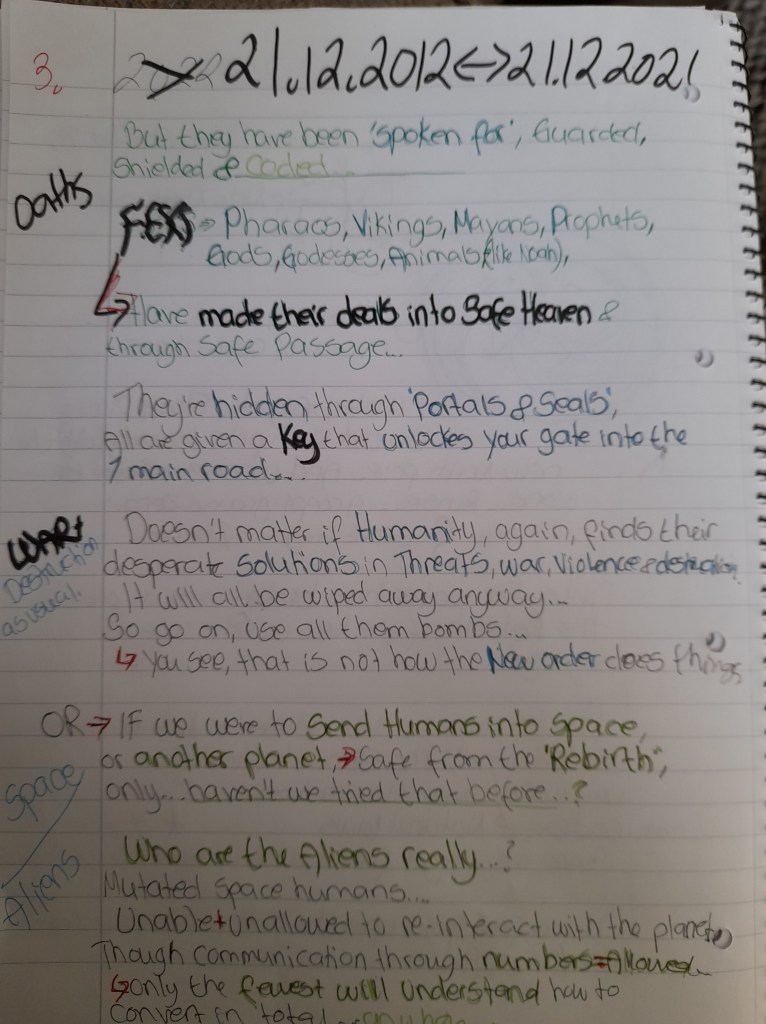 3.
21.12.2012<->21.12 2021
But they have been 'spoken for', Guarded,
Shielded & Coded...
Oaths
F.EXS → Pharaos, Vikings, Mayans, Prophets,
Gods, Godesses, Animals (like Noah),
↳ Have made their deals into Safe Heaven &
through Safe Passage...
They're hidden through 'Portals & Seals',
All are given a Key that unlockes your gate into the
1 main road....
WAR+
Destruction
as usual.
Doesn't matter if Humanity, again, finds their
desperate Solutions in Threats, war, Violence & destruction.
It will all be wiped away anyway...
So go on, use all them bombs...
↳ You see, that is not how the New order does things
OR → IF we were to Send Humans into Space,
or another planet, → Safe from the 'Rebirth',
only... haven't we tried that before..?
Space/
Aliens
Who are the Aliens really...?
Mutated Space humans....
Unable + unallowed to re-interact with the planet
Though communication through numbers = Allowed...
↳ only the fewest will understand how to
convert in 'total'